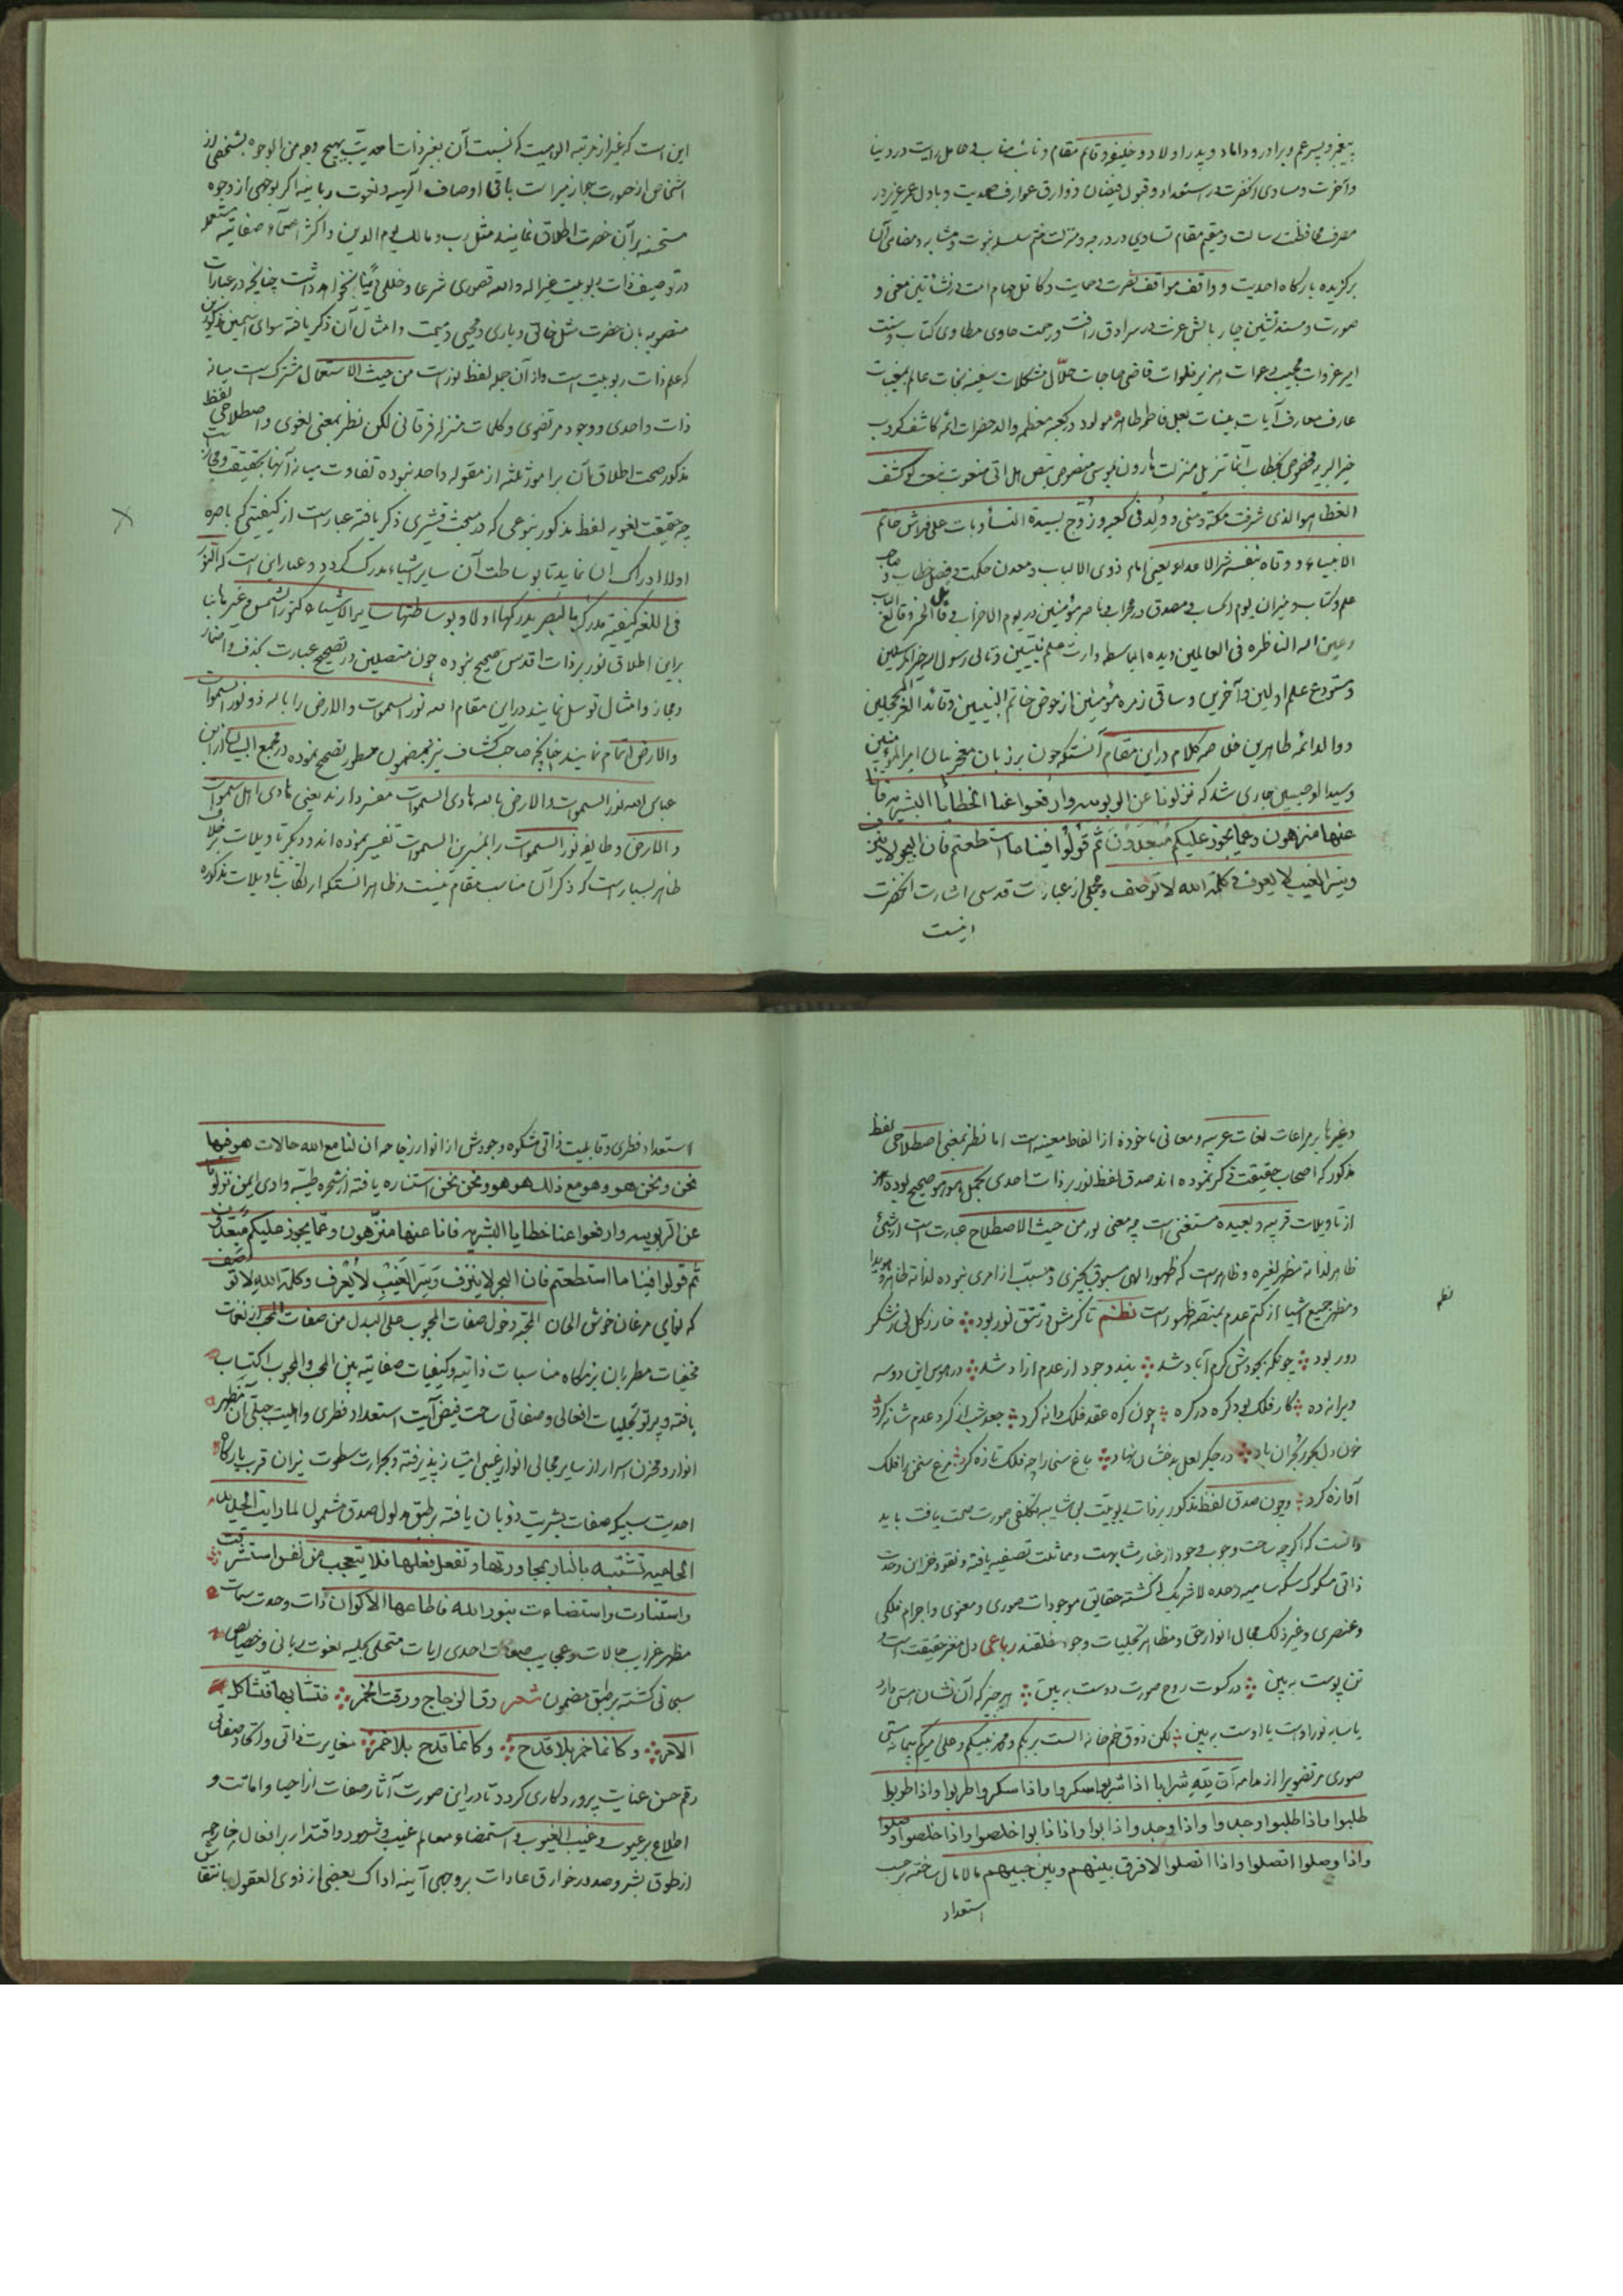 پیغمبر و پسر عم و برادر و داماد و پدر اولاد و خلیفه و قائم مقام و نائب مناب حامل رایت در دنیا
و آخرت و مساوی آنحضرت در استعداد و قبول فیضان ذوارق عوارف صمدیت و باذل عمر عزیز در
مصرف محافظت رسالت و مقیم مقام تساوی در درجه و منزلت ختم سلسله نبوت و مشابه و مضاهی آن
برگزیده بارگاه احدیت و واقف مواقف نصرت و حمایت و کافل مهام امت در نشأتین معنی و
صورت و مسند نشین چار بالش عزت در سرادق رأفت و رحمت حاوی مطاوی کتاب و سنت
امیر غزوات مجیب دعوات هزبر فلوات قاضی حاجات حلّال مشکلات سفینه نجات عالم مغیبات
عارف معارف آیات بینات بعل فاطمه طاهره مولود در کعبه معظمه والد حضرات ائمه کاشف کروب
خیر البریه مخصوص بخطاب انما تنزیل منزلت هارون بموسی منصوص بنص هل اتی منعوت بنعت لو کشف
الغطا هو الذی شرفت مکة و منی و وُلِد فی کعبه و زُوّج بسیدة النسآء و بات علی فراش خاتم
الانبیاء و وقاه بنفسه شر الاعداء یعنی امام ذوی الالباب و معدن حکمت و فصل خطاب و صاحب
علم کتاب و میزان یوم الحساب مصدق در محراب ناصر مؤمنین در یوم الاحزاب
و عین الله الناظره فی العالمین و یده الباسطه وارث علم نبیین و تالی رسول در خیر المرسلین
و مستودع علم اولین و آخرین و ساقی زمره مؤمنین از حوض خاتم النبیین و قائد الغر المحجلین
و والد ائمه طاهرین خلاصه کلام در این مقام آنستکه چون بر زبان معجز بیان امیر المؤمنین
و سید الوصیین جاری شد که نزلونا عن الربوبیه وارفعوا عنا الخطایا البشریه فانا
عنها منزهون و عما یجوز علیکم مُبَعَّدُونَ ثم قولوا فینا ما استطعتم فان البحر لا ینزف
و سر الغیب لا یعرف و کلمة الله لا توصف و مجملی از عبارت قدسی اشارت آنحضرت
اینست
این است که غیر از مرتبه الوهیت که نسبت آن بغیر ذات احدیت بهیچ وجه من الوجوه بشخصی از
اشخاص از صورت جواز مبرا است باقی اوصاف الهیه و نعوت ربانیه اگر بوجهی از وجوه
مستحسنه بر آن حضرت اطلاق نمایند مثل رب و مالک یوم الدین و اکثر اسماء صفاتیه مستعمله
در توصیف ذات ربوبیت عزاسمه والله قصوری شرعا و خللی دینا نخواهد داشت چنانچه در عبارات
منصوبه بآن حضرت مثل خالق و باری و محیی و ممیت و امثال آن ذکر یافته سوای اسمین مذکورین
که علم ذات ربوبیت است و از آن جمله لفظ نور است من حیث الاستعمال مشترک است میانه
ذات واحدی و وجود مرتضوی و کلمات منزله فرقانی لکن نظر بمعنی لغوی و اصطلاحی لفظ
مذکور صحت اطلاق آن بر امور ثلثه از مقوله واحد نبوده تفاوت میانه آنها بحقیقت و مجاز است
چه حقیقت لغویه لفظ مذکور بنوعی که در مبحث قشیری ذکر یافته عبارت است از کیفیتی که باصره
اولا ادراک آن نماید تا بوساطت آن سایر اشیاء مدرک گردد و عبارت این است که النور
فی اللغه کیفیته مدرکها البصر یدرکها اولا و بوساطتها سایر الاشیاء کنور الشمس و غیرها بنا
براین اطلاق نور بر ذات اقدس صحیح نبوده چون متصلین در تصحیح عبارت بحذف و اضمار
و مجاز و امثال توسل نمایند در این مقام الله نور السموات والارض را باله ذو نور السموات
والارض اتمام نمایند چنانچه صاحب کشاف نیز بمضمون مسطور تصحیح نموده در مجمع البیان از ابن
عباس الله نور السموات والارض بالله هادی السموات مفسر دارند یعنی هادی اهل سموات
و الارض و طایفه نور السموات را بالمنیر بین السموات تفسیر نموده اند و دیگر تأویلات خلاف
ظاهر بسیار است که ذکر آن مناسب مقام نیست و ظاهر آنستکه ارتکاب تأویلات مذکوره
و غیرها بر مراعات لغات عربیه و معانی ماخوذه از الفاظ معینه است اما نظر بمعنی اصطلاحی لفظ
مذکور که اصحاب حقیقت ذکر نموده اند صدق لفظ نور بر ذات احدی صحیح بوده
از تأویلات قریبه و بعیده مستغنی است چه معنی نور من حیث الاصطلاح عبارت است از شیئ
ظاهر لذاته مظهر لغیره و ظاهر است که ظهور الهی مسبوق بچیزی و مسبب از امری نبوده لذاته ظاهر و هویدا
و مظهر جمیع اشیا از کتم عدم بمنصه ظهور است نظم تا کرمش در تتق نور بود خار ز گل نی ز شکر
نظم
دور بود چونکه بجودش کرم آباد شد بند وجود از عدم آزاد شد در هوس این دو سه
ویرانه ده کار فلک بود گره در گره چون گره عقد فلک دانه کرد جعد شب از گرد عدم شانه کرد
خون دل در جگر لعل بدخشان نهاد باغ سخی را چو فلک تازه کرد مرغ سخن را فلک
آوازه کرد و چون صدق لفظ مذکور بر ذات ربوبیت بی شایبه تکلفی صورت صحت یافت باید
دانست که اگر چه ساحت وجوب وجود از غبار مشابهت و مماثلت تصفیه یافته و نقود خزاین وحدت
ذاتی مسکوک سکه سامیه وحده لا شریک له گشته حقایق موجودات صوری و معنوی و اجرام فلکی
و عنصری و غیر ذلک مجال انوار حق و مظاهر تجلیات وجود مطلقند رباعی دل مغز حقیقت است و
تن پوست به بین در کسوت روح صورت دوست به بین هر چیز که آن نشان هستی دارد
یا سایه نور اوست یا اوست به بین لکن ذوق خم خانه الست بربکم و محمد نبیکم و علی امیرکم پیمانه هستی
صوری مرتضوی را از مدامه آن لله شرابا اذا شربوا سکروا و اذا سکروا طربوا و اذا طربوا
طلبوا و اذا طلبوا وجدوا و اذا وجدوا ذابوا و اذا ذابوا خلصوا و اذا خلصوا وصلوا
و اذا وصلوا اتصلوا و اذا اتصلوا لا فرق بینهم و بین حبیبهم مالامال ساخته بر حسب
استعداد
استعداد فطری و قابلیت ذاتی مشکوه وجودش از انوار زجاجه ان لنا مع الله حالات هو فیها
نحن و نحن هو و هو مع ذلک هو هو و نحن نحن استناره یافته از شجره طیّبه وادی ایمن نزلونا
عن الربوبیه وارفعوا عنا خطایا البشریه فانا عنها منزّهون و عمّا یجوز علیکم مُبعّدُون
ثم قولوا فینا ما استطعتم فان البحر لا ینزف و سرّ الغیبِ لا یُعرف و کلمة الله لا توصف
که نوای مرغان خوش الحان المحبّه دخول صفات المحبوب علی البدل من صفات المحب از نغمات
مخفیات مطربان بزمگاه مناسبات ذاتیه و کیفیات صفاتیه بین المحب والمحبوب اکتساب
یافته و پرتو تجلیات افعالی و صفاتی ساحت فیض آیت استعداد فطری و اهلیت جبلّی آن مظهر
انوار و مخزن اسرار از سایر مجالی انوار غیبی امتیاز پذیرفته و بحرارت سطوت نیران قرب بارگاه
احدیت سبیکه صفات بشریت ذوبان یافته بر طبق مدلول صدق مشمول لما رایت الحدیده
الحامیه تشتبه بالنار بمجاورتها و تفعل فعلها فلا تتعجب من نفس استشرقت
واستنارت واستضاءت بنور الله فاطاعها الاکوان ذات وحدت سمات
مظهر غرایب حالات و عجایب صفات احدی ایات متحلی بحلیه نعوت ربانی و خصایص
سبحانی گشته بر طبق مضمون شعر رق الزجاج و رقت الخمر فتشابها فتشاکل
الامر و کانما خمر بلا قدح و کانما قدح بلا خمر مغایرت ذاتی و اتحاد صفاتی
رقم حسن عنایت پروردگاری گردد تا در این صورت آثار صفات از احیا و اماتت و
اطلاع بر عیوب و غیب الغیوب و استمضاء معالم غیب و شهود و اقتدار بر افعال خارجه
از طوق بشر و صدور خوارق عادات بر وجهی آیینه ادراک بعضی از ذوی العقول بانتقاش